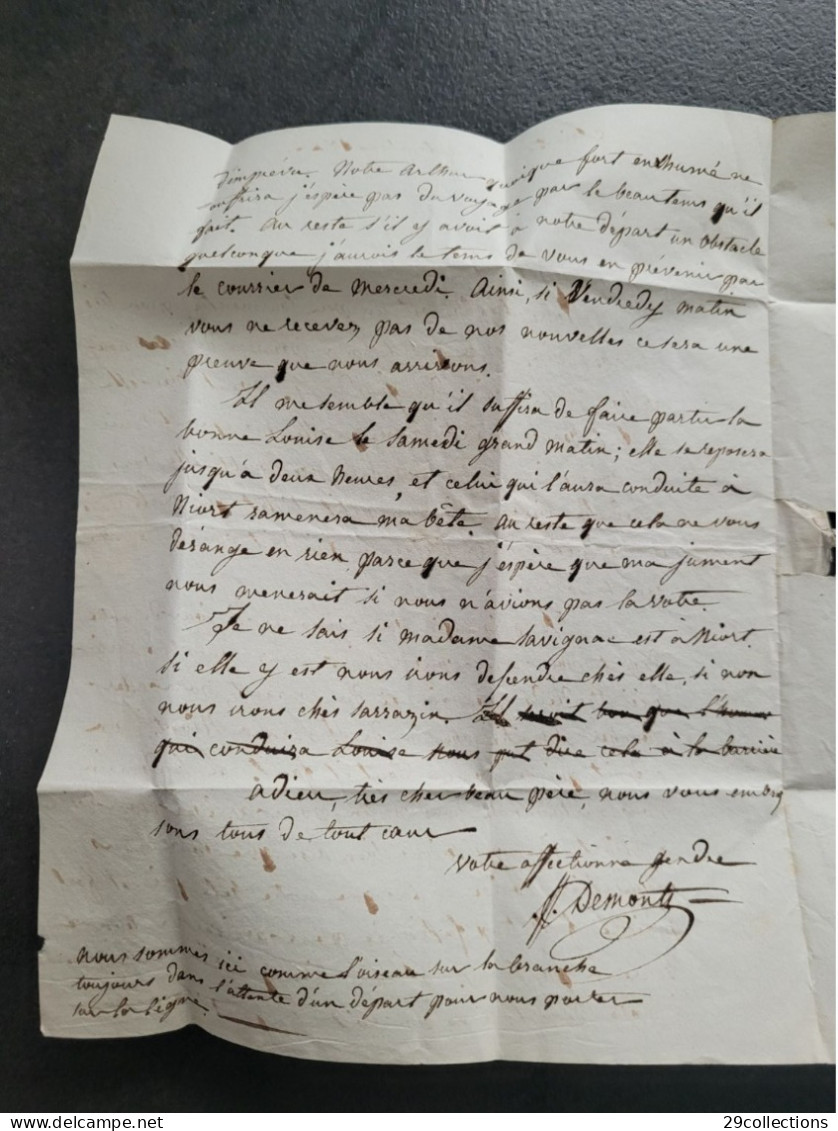 d'imprévu. Notre Arthur quoique fort enrhumé ne
souffrira j'espère pas du voyage par le beau tems qu'il
fait. Au reste s'il y avoit à notre départ un obstacle
quelconque j'aurois le tems de vous en prévenir par
le courrier de mercredi. Ainsi, si Vendredy matin
vous ne recevez pas de nos nouvelles ce sera une
preuve que nous arrivons.
Il me semble qu'il suffira de faire partir la
bonne Louise le Samedi grand matin; elle se reposera
jusqu'à deux heures, et celui qui l'aura conduite à
Niort ramenera ma bête. Au reste que cela ne vous
dérange en rien, parce que j'espère que ma jument
nous menerait si nous n'avions pas la votre.
Je ne sais si madame Savignac est à Niort.
si elle y est nous irons descendre chés elle, si non
nous irons chés Sarrazin. Il seroit bon que l'homme
qui conduira Louise nous put dire cela à la barrière
adieu, très cher beau père, nous vous embras
sons tous de tout cœur
Votre affectionné gendre
Demonts
nous sommes ici comme l'oiseau sur la branche
toujours dans l'attente d'un départ pour nous porter
sur la ligne.
29collections